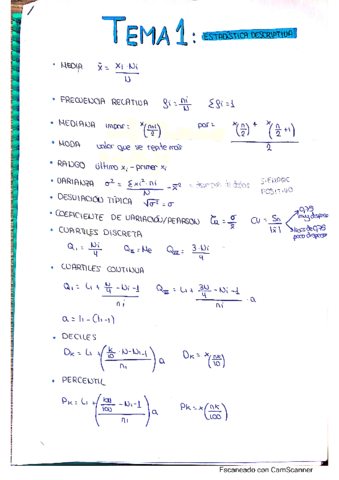 TEMA 1: ESTADÍSTICA DESCRIPTIVA
• MEDIA x̄ = xi · Ni / N
• FRECUENCIA RELATIVA fi = ni / N Σfi = 1
• MEDIANA impar: x(n+1 / 2) par = x(n/2) + x(n/2 + 1) / 2
• MODA valor que se repite más
• RANGO último xi - primer xi
• VARIANZA σ² = Σxi² · ni / N - x̄² = datos SIEMPRE POSITIVO
• DESVIACIÓN TÍPICA √σ² = σ
• COEFICIENTE DE VARIACIÓN/PEARSON = σ / x̄ CV = Sn / |x̄|
muy disperso
poco disperso
• CUARTILES DISCRETA
Q1 = Ni / 4 QII = Me QIII = 3·Ni / 4
• CUARTILES CONTINUA
Q1 = Li + N/4 - Ni-1 / ni QIII = Li + 3N/4 - Ni-1 / ni · a
a = li - (li-1)
• DECILES
DK = Li + (k/10 · N - Ni-1 / ni) a DK = x(nk / 10)
• PERCENTIL
PK = Li + ( /100 - Ni-1 / ni) a PK = x(nk / 100)
Escaneado con CamScanner